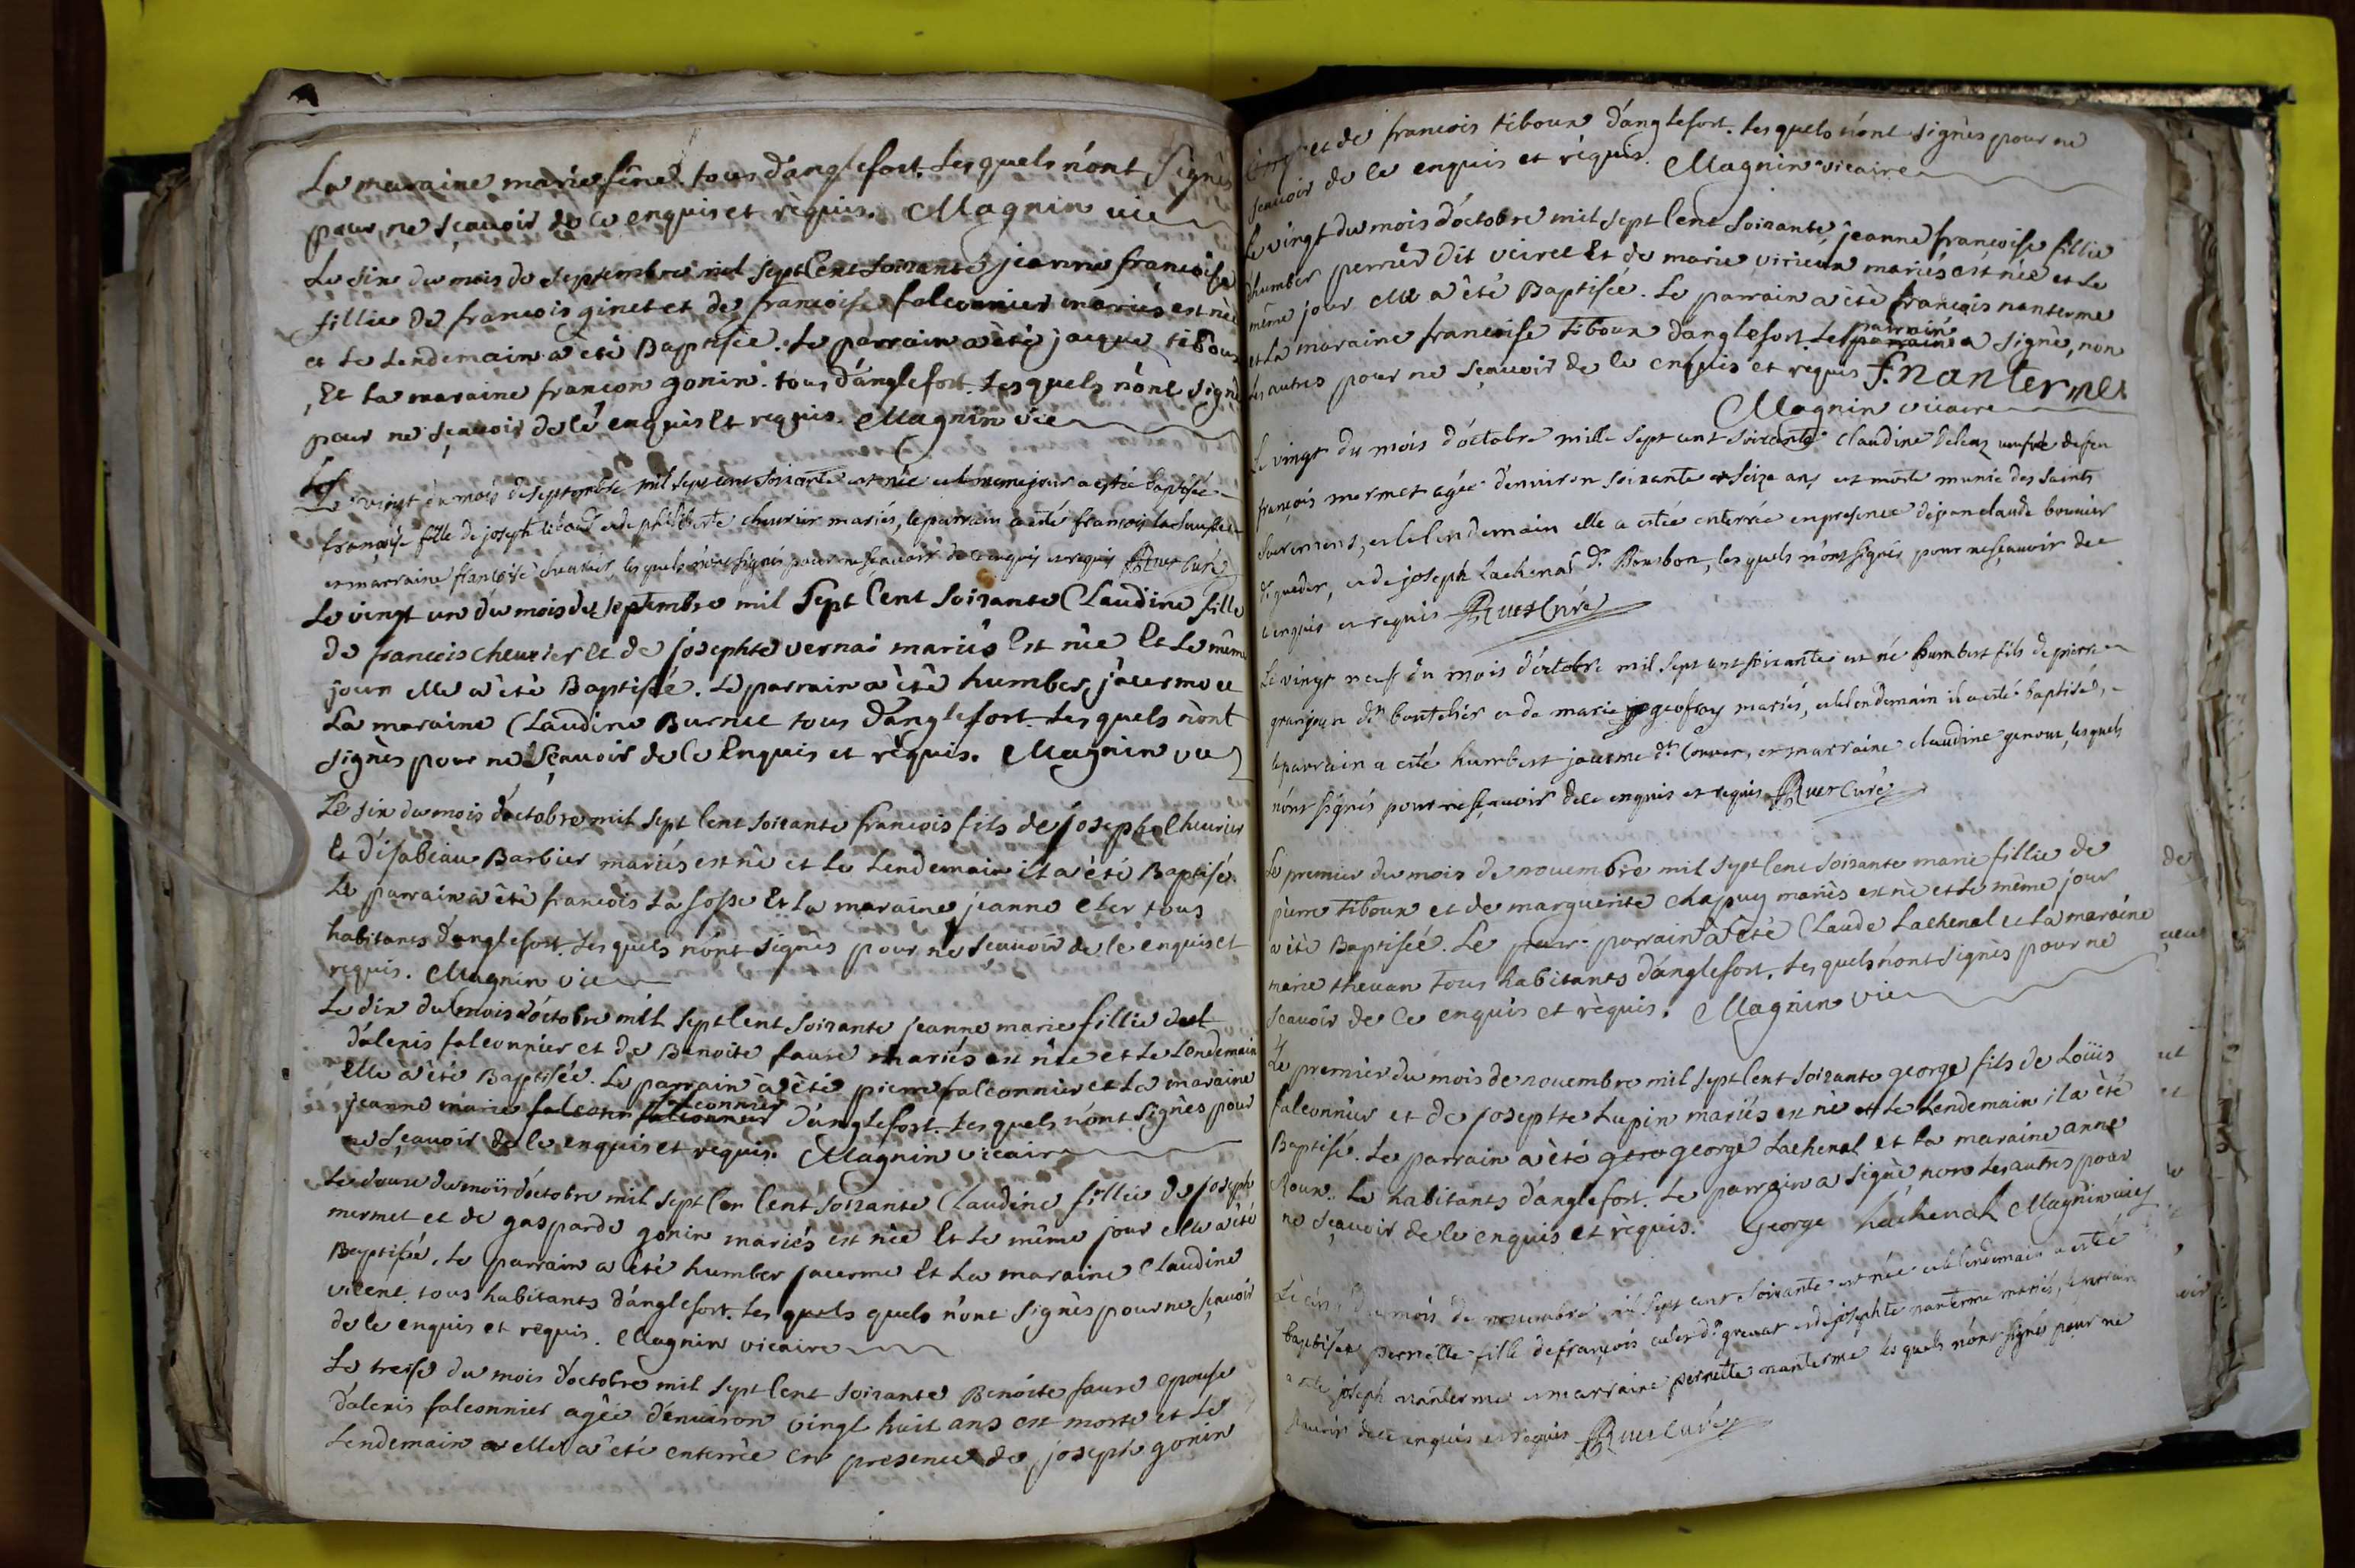 La maraine marie fine tous d'anglefort. Lesquels n'ont signés
pour ne sçauoir de ce enquis et réquis. Magnin vic
Le six du mois de septembre mil sept Cent soixante jeanne francoise
fillie de francois ginet et de francoise falconnier mariés est née
et Le Lendemain a été Baptisée. Le parrain a été jacque tiboux
Et La maraine françon gonin. tous d'anglefort. Lesquels n'ont signé
pour ne sçauoir de ce enquis Et requis. Magnin vic
Le vingt du mois de septembre mil sept cent soixante est née et le meme jour a estée baptisée
françoise fille de joseph tiboud et de philiberte cheurier mariés, le parrain a esté françois
et marraine françoise cheurier, lesquels n'ont signés pour ne sçauoir de ce enquis et requis Ruet Curé
Le vingt un du mois de septembre mil sept Cent soixante Claudine fille
de francois cheurier Et de josephte vernai mariés Est née Et Le même
jour elle a été Baptisée. Le parrain a été humber jacerme et
La maraine Claudine Burnet tous d'anglefort. Lesquels n'ont
signés pour ne sçauoir de ce Enquis et réquis. Magnin vic
Le six du mois d'octobre mil sept Cent soixante francois fils de joseph Cheurier
Et d'isabeau Barbier mariés est né et Le Lendemain il a été Baptisé.
Le parrain a été francois La fosse Et La maraine jeanne eler tous
habitants d'anglefort. Lesquels n'ont signés pour ne sçauoir de ce enquis et
requis. Magnin vic
Le dix du mois d'octobre mil sept Cent soixante jeanne marie fillie
d'alexis falconnier et de Benoite faure mariés est née et Le Lendemain
Elle a été Baptisée. Le parrain a été pierre falconnier et La maraine
jeanne marie falconnier d'anglefort. Lesquels n'ont signés pour
ne sçauoir de ce enquis et requis. Magnin vicaire
Le douze du mois d'octobre mil sept Cen Cent soixante Claudine fillie de joseph
mermet et de gasparde gonin mariés est née Et Le même jour elle a été
Baptisée. Le parrain a été humber jacerme Et La maraine Claudine
vicent. tous habitants d'anglefort. Les quels quels n'ont signés pour ne sçauoir
de ce enquis et requis. Magnin vicaire
Le treise du mois d'octobre mil sept Cent soixante Benoite faure epouse
d'alexis falconnier agée d'enuiron vingt huit ans est morte et Le
Lendemain elle a été enterrée en presence de joseph gonin
et de francois tiboux d'anglefort. Lesquels n'ont signés pour ne
sçauoir de ce enquis et réquis. Magnin vicaire
Le vingt du mois d'octobre mil sept Cent soixante, jeanne francoise fillie
d'humber perrier dit veiret Et de marie virieux mariés est née et Le
même jour elle a été Baptisée. Le parrain a été francois nanterme
et La maraine francoise tiboux d'anglefort Le parrain a signé, non
Les autres pour ne sçauoir de ce enquis et requis f. nanterme
Magnin vicaire
Le vingt du mois d'octobre mille sept cent soixante claudine veufve de feu
françois mermet agée d'enuiron soixante et seize ans est morte munie des saints
sacrements, et le lendemain elle a estée enterrée en presence de jean claude bouuier
de gueder, et de joseph Lachenal dt Bourbon, lesquels n'ont signés pour ne sçauoir de
ce enquis et requis Ruet Curé
Le vingt neuf du mois d'octobre mil sept cent soixante est né humbert fils de pierre
granjean dt boutelier et de marie geofray mariés, et le lendemain il a esté baptisé,
le parrain a esté humbert jacerme dt et marraine claudine genoux, lesquels
n'ont signés pour ne sçauoir de ce enquis et requis Ruet Curé
Le premier du mois de nouembre mil sept Cent soixante marie fillie de
pierre tiboux et de marguerite chapuy mariés est née et Le même jour
a été Baptisée. Le parrain a été Claude Lachenal et La maraine
marie theuan tous habitants d'anglefort. Lesquels n'ont signés pour ne
sçauoir de ce enquis et réquis. Magnin vic
Le premier du mois de nouembre mil sept Cent soixante george fils de Loüis
falconnier et de josephte Lupin mariés est né et Le Lendemain il a été
Baptisé. Le parrain a été george Lachenal et La maraine anne
Roux. habitants d'anglefort. Le parrain a signé non Les autres pour
ne sçauoir de ce enquis et réquis. George Lachenal Magnin vic
Le cinq du mois de nouembre mil sept cent soixante est née et le lendemain a estée
baptisée pernette fille de françois dt et de josephte nanterme mariés, le parrain
a esté joseph nanterme et marraine pernette nanterme lesquels n'ont signé pour ne
sçauoir de ce enquis et requis Ruet Curé